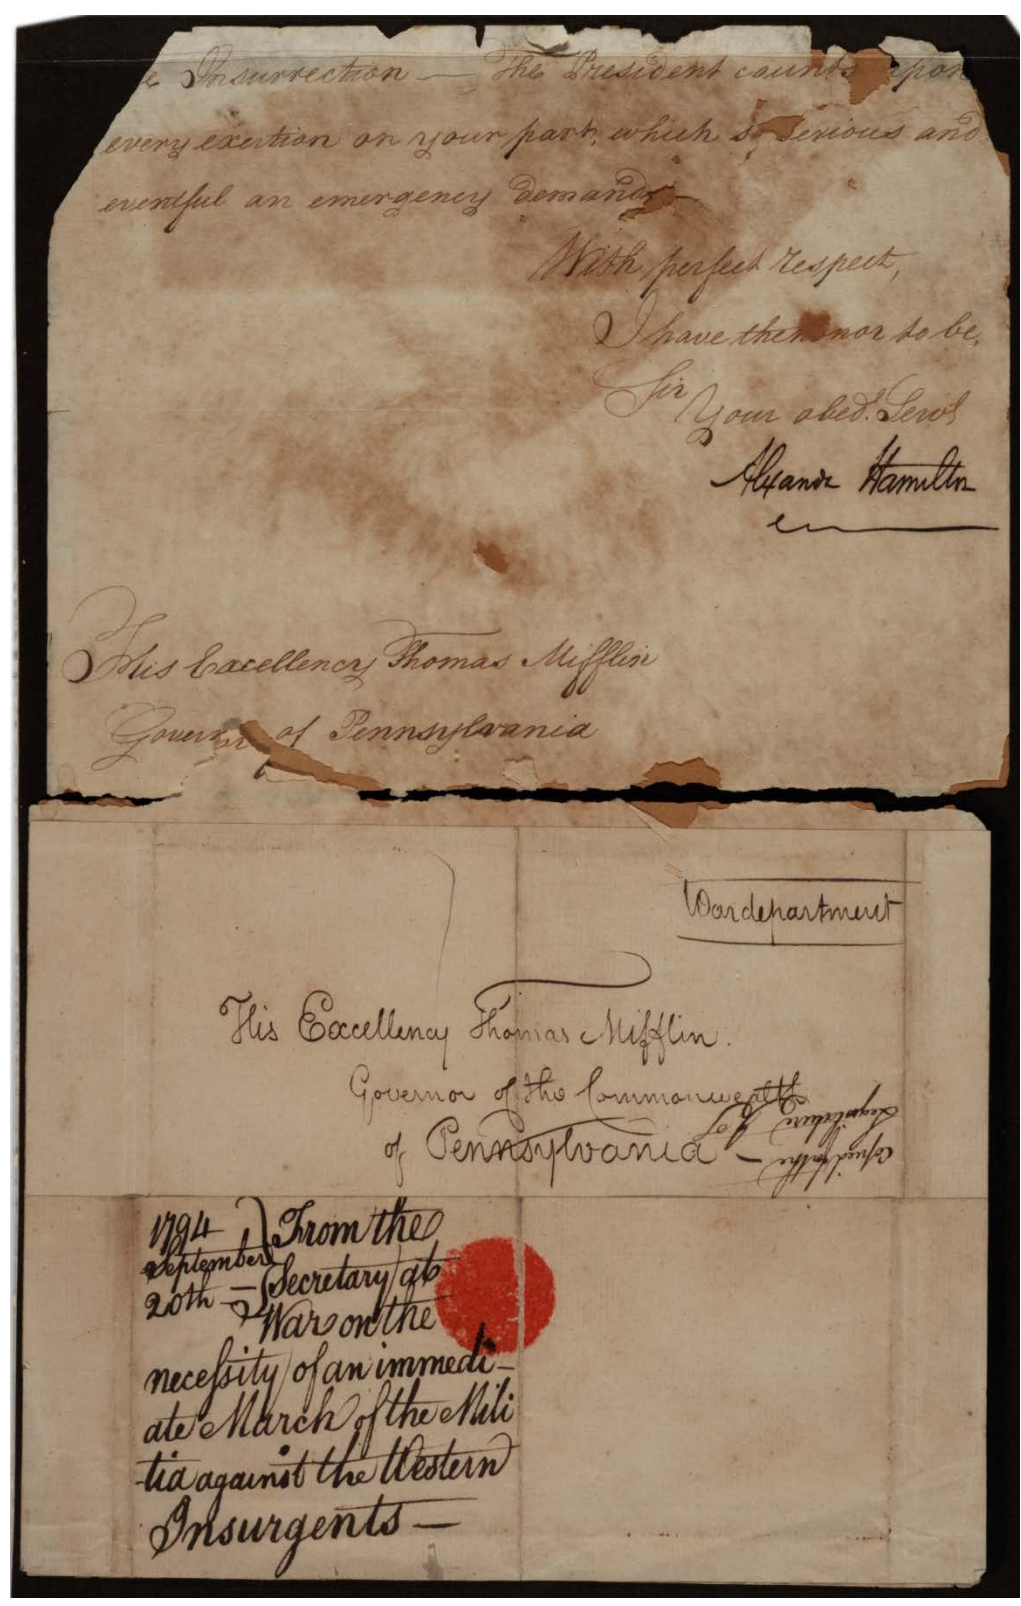 e Insurrection — The President counts upon
every exertion on your part, which so serious and
eventful an emergency demands —
With perfect respect,
I have the honor to be,
Sir
Your obed. Servt
Alexander Hamilton
His Excellency Thomas Mifflin
Governor of Pennsylvania
War department
His Excellency Thomas Mifflin.
Governor of the Commonwealth
of Pennsylvania —
Copied for the
Legislature
1794
September
20th —
From the
Secretary at
War on the
necessity of an immedi-
ate March of the Mili
tia against the Western
Insurgents —